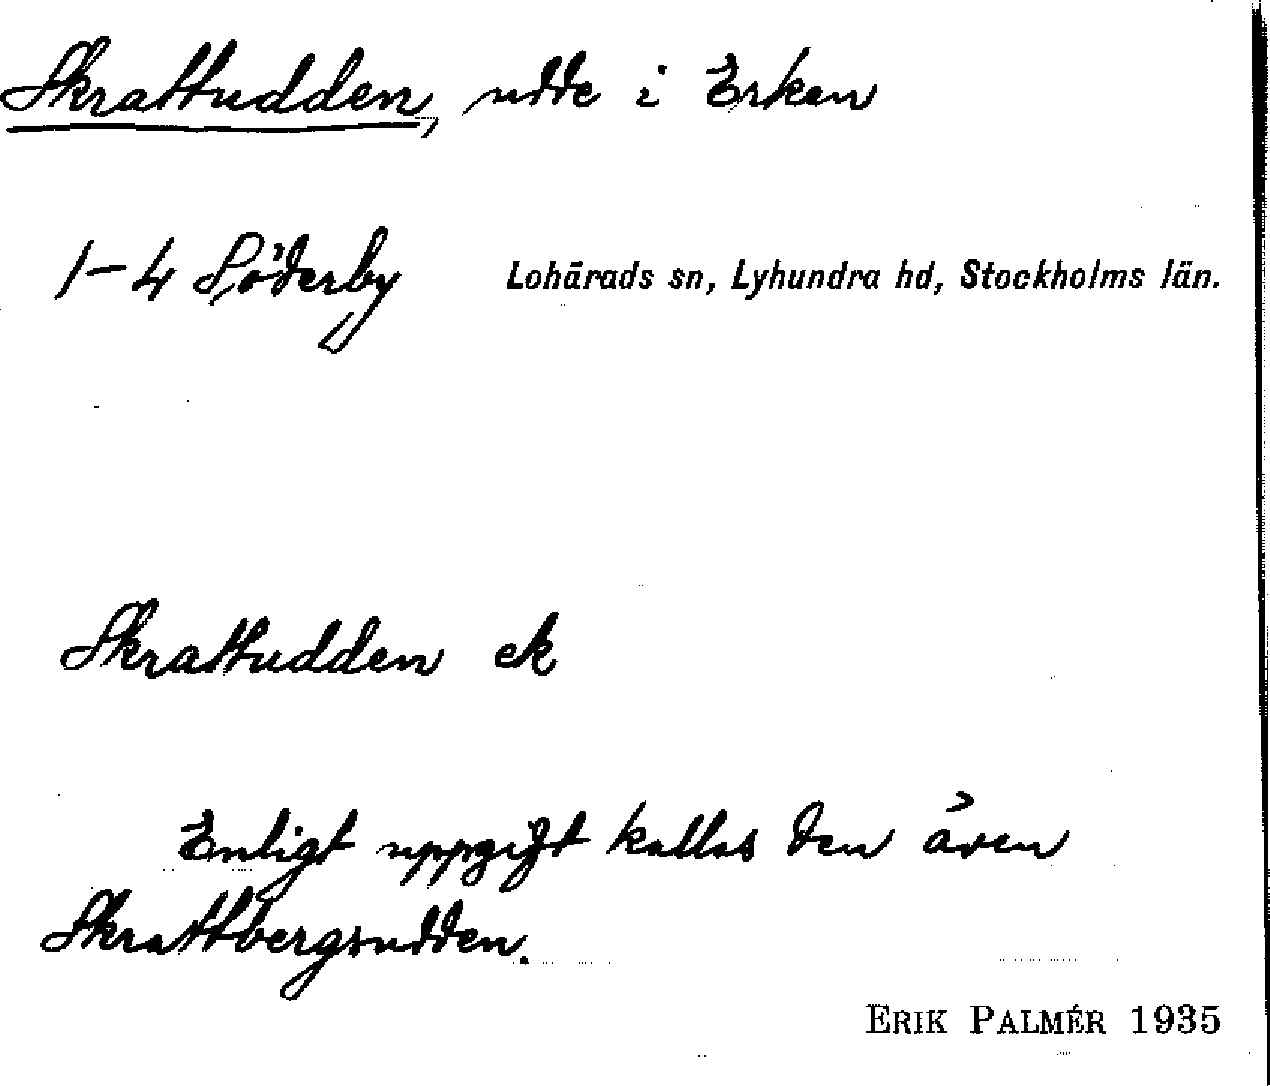 Skrattudden, udde i Erken
1-4 Söderby Lohärads sn, Lyhundra hd, Stockholms län.
Skrattudden ek
Enligt uppgift kallas den även
Skrattbergsudden.
ERIK PALMÉR 1935